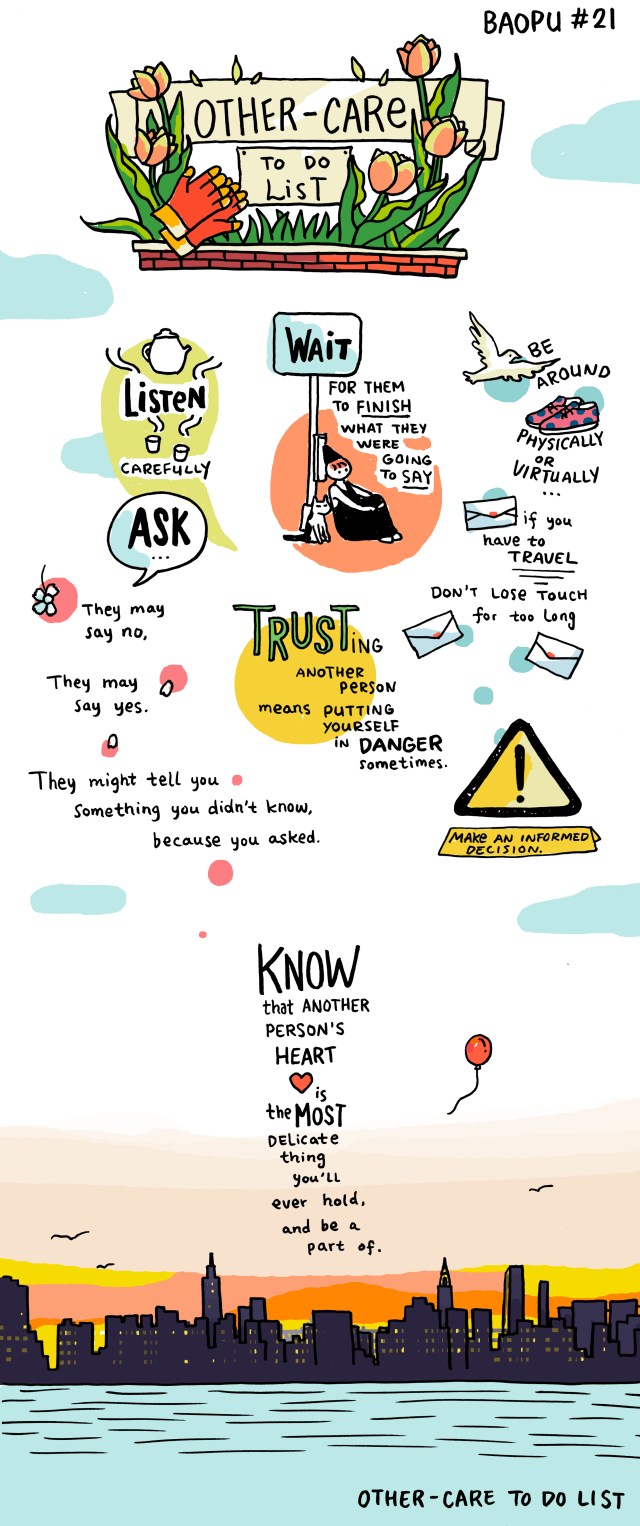 BAOPU #21
OTHER-CARE
TO DO
LIST
LISTEN
CAREFULLY
ASK
...
WAIT
FOR THEM
TO FINISH
WHAT THEY
WERE
GOING
TO SAY
BE
AROUND
PHYSICALLY
OR
VIRTUALLY
...
if you
have to
TRAVEL
DON'T LOSE TOUCH
for too long
They may
say no,
They may
say yes.
They might tell you
Something you didn't know,
because you asked.
TRUSTING
ANOTHER
PERSON
means PUTTING
YOURSELF
in DANGER
sometimes.
!
MAKE AN INFORMED
DECISION.
KNOW
that ANOTHER
PERSON'S
HEART
is
the MOST
DELicate
thing
you'll
ever hold,
and be a
part of.
OTHER-CARE TO DO LIST